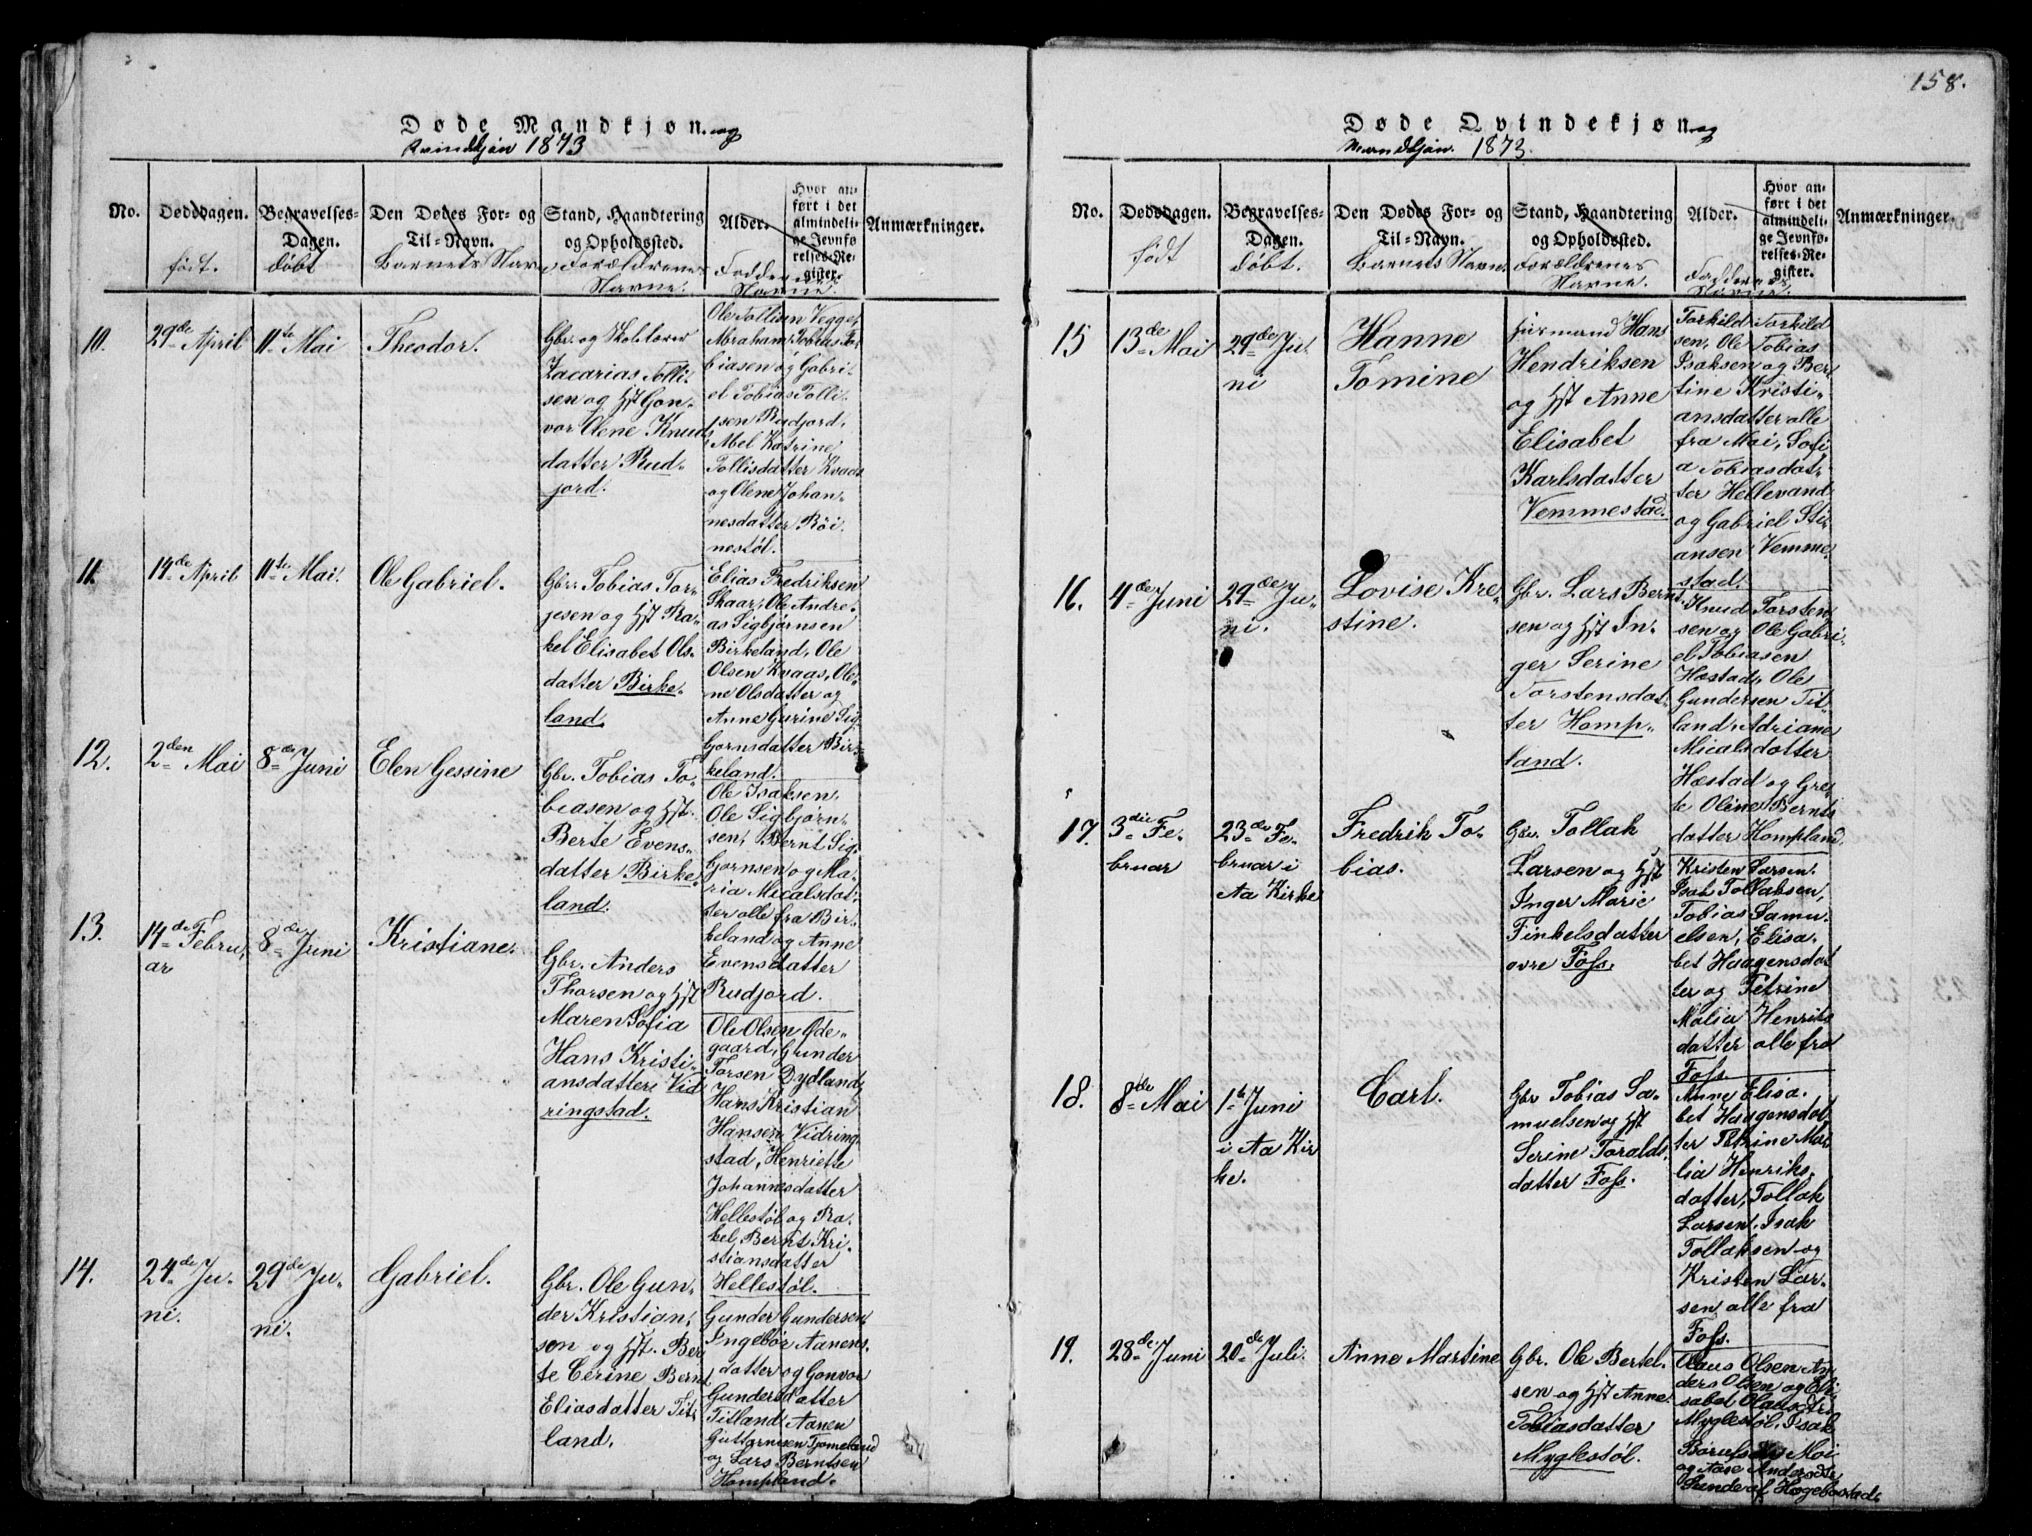 158.
Døde Mandkjøn. og
Kvindkjøn 1873
No.
Dødsdagen.
født.
Begravelses-
Dagen.
døbt
Den Dødes For- og
Til-Navn.
Barnets Navn
Stand, Haandtering
og Opholdssted.
Forældrenes
Navne.
Alder.
Faddernes
Navne.
Hvor an-
ført i det
almindeli-
ge Jevnfø-
relses-Re-
gister.
Anmærkninger.
10.
29de April
11te Mai
Theodor.
Gbr. og Skolelærer
Zacarias Tolli-
sen og Hst Gon-
vor Olene Knuds
datter Rud-
jord.
Ole Tollisen Vegge,
Abraham Tobias To-
biasen og Gabri-
el Tobias Tolli-
sen Rudjord,
Abel Katrine
Tollisdatter Kvaas
og Olene Johan-
nesdatter Röi-
nestøl.
11.
14de April
11te Mai.
Ole Gabriel.
Gbr. Tobias Tor-
jesen og Hst Ra-
kel Elisabet Ols-
datter Birke-
land.
Elias Fredriksen
Skaar, Ole Andre-
as Sigbjørnsen
Birkeland, Ole
Olsen Kvaas, Ole-
ne Olsdatter og
Anne Gurine Sig-
bjørnsdatter Bir-
keland.
12.
2den Mai
8de Juni
Elen Gessine
Gbr. Tobias To-
biasen og Hst.
Berte Evens-
datter Birke-
land.
Ole Isaksen,
Ole Sigbjørn-
sen, Bernt Sig-
bjørnsen og Ma-
ria Micalsdat-
ter alle fra Bir-
keland og Anne
Evensdatter
Rudjord.
13.
14de Febru-
ar
8de Juni
Kristiane.
Gbr. Anders
Thorsen og Hst
Maren Sofia
Hans Kristi-
ansdatter Vid-
ringstad.
Ole Olsen Øde-
gaard, Gunder
Torsen Dydland,
Hans Kristian
Hansen Vidring-
stad, Henriette
Johannesdatter
Hellestøl og Ra-
kel Bernt Kri-
stiansdatter
Hellestøl.
14.
24de Ju-
ni.
29de Ju-
ni.
Gabriel.
Gbr. Ole Gun-
der Kristian-
sen og Hst. Ber-
te Cerine Bernt
Eliasdatter Tit-
land.
Gunder Gundersen,
Ingebor Aanens-
datter og Gonvor
Gundersdatter
Titland, Aanen
Guttormsen Tjomeland
og Lars Berntsen
Hompland.
Døde Qvindekjøn og
Mandkjøn. 1873.
No.
Dødsdagen.
født
Begravelses-
Dagen.
døbt.
Den Dødes For- og
Til-Navn.
Barnets Navn.
Stand, Haandtering
og Opholdssted.
Forældrenes
Navne.
Alder.
Faddernes
Navne.
Hvor an-
ført i det
almindeli-
ge Jevnfø-
relses-Re-
gister.
Anmærkninger.
15
13de Mai
29de Ju-
ni
Hanne
Tomine
furmand Hans
Hendriksen
og Hst Anne
Elisabet
Karlsdatter
Vemmestad.
Torkild Torkild
sen, Ole Tobias
Isaksen og Ber-
tine Kristi-
ansdatter alle
fra Moi, Sofi-
a Tobiasdat-
ter Hellevand
og Gabriel Sti-
ansen Vemme-
stad.
16.
4de Juni
29de Ju-
ni.
Lovise Kre-
stine.
Gbr. Lars Bernt-
sen og Hst In-
ger Serine
Torstensdat-
ter Homp-
land.
Knud Torsten-
sen og Ole Gabri-
el Tobiasen
Hæstad, Ole
Gundersen Tit-
land, Adriane
Micalsdatter
Hæstad og Gre-
te Oline Bernts
datter Hompland.
17.
3die Fe-
bruar
23de Fe-
bruar i
Aa Kirke
Fredrik To-
bias.
Gbr. Tollak
Larsen og Hst
Inger Marie
Finkelsdatter
øvre Foss.
Kristen Larsen,
Isak Tollaksen,
Tobias Samu-
elsen, Elisa-
bet Haagensdat
ter og Petrine
Malia Henriks
datter alle fra
Foss
18.
8de Mai
1te Juni
i Aa Kir
ke.
Carl.
Gbr Tobias Sa-
muelsen og Hst
Serine Toralds-
datter Foss.
Anne Elisa-
bet Haagensdat
ter Petrine Ma-
lia Henriks-
datter, Tollak
Larsen, Isak
Tollaksen og
Kristen Lar-
sen alle fra
Foss.
19.
28de Juni
20de Juli.
Anne Martine
Gbr. Ole Bertel-
sen og Hst Anne
Tobiasdatter
Myglestøl.
Claus Olsen An
ders Olsen og Eli
sabet Olausdtr
Myglestøl, Isak
Moi
og Aase Andersdtr
Hægebostad